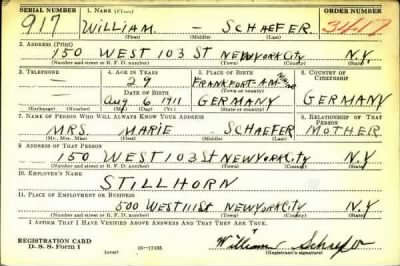 SERIAL NUMBER 1. NAME (Print) ORDER NUMBER
917 WILLIAM. - SCHAEFER 3417
(First) (Middle) (Last)
2. ADDRESS (Print)
150 WEST 103 ST NEW YORK CITY N.Y.
(Number and street or R. F. D. number) (Town) (County) (State)
3. TELEPHONE 4. AGE IN YEARS 5. PLACE OF BIRTH 6. COUNTRY OF CITIZENSHIP
29 FRANKFURT-AM-
DATE OF BIRTH (Town or county)
Aug 6 1911 GERMANY GERMANY
(Exchange) (Number) (Mo.) (Day) (Yr.) (State or country)
7. NAME OF PERSON WHO WILL ALWAYS KNOW YOUR ADDRESS 8. RELATIONSHIP OF THAT PERSON
MRS. MARIE - SCHAEFER MOTHER
(Mr., Mrs., Miss) (First) (Middle) (Last)
9. ADDRESS OF THAT PERSON
150 WEST 103 St NEW YORK CITY N.Y
(Number and street or R. F. D. number) (Town) (County) (State)
10. EMPLOYER'S NAME
STILLHORN
11. PLACE OF EMPLOYMENT OR BUSINESS
500 WEST 111 St NEW YORK CITY N.Y
(Number and street or R. F. D. number) (Town) (County) (State)
I AFFIRM THAT I HAVE VERIFIED ABOVE ANSWERS AND THAT THEY ARE TRUE.
REGISTRATION CARD
D. S. S. Form 1 (over) 16-17105 William Schaefer
(Registrant's signature)